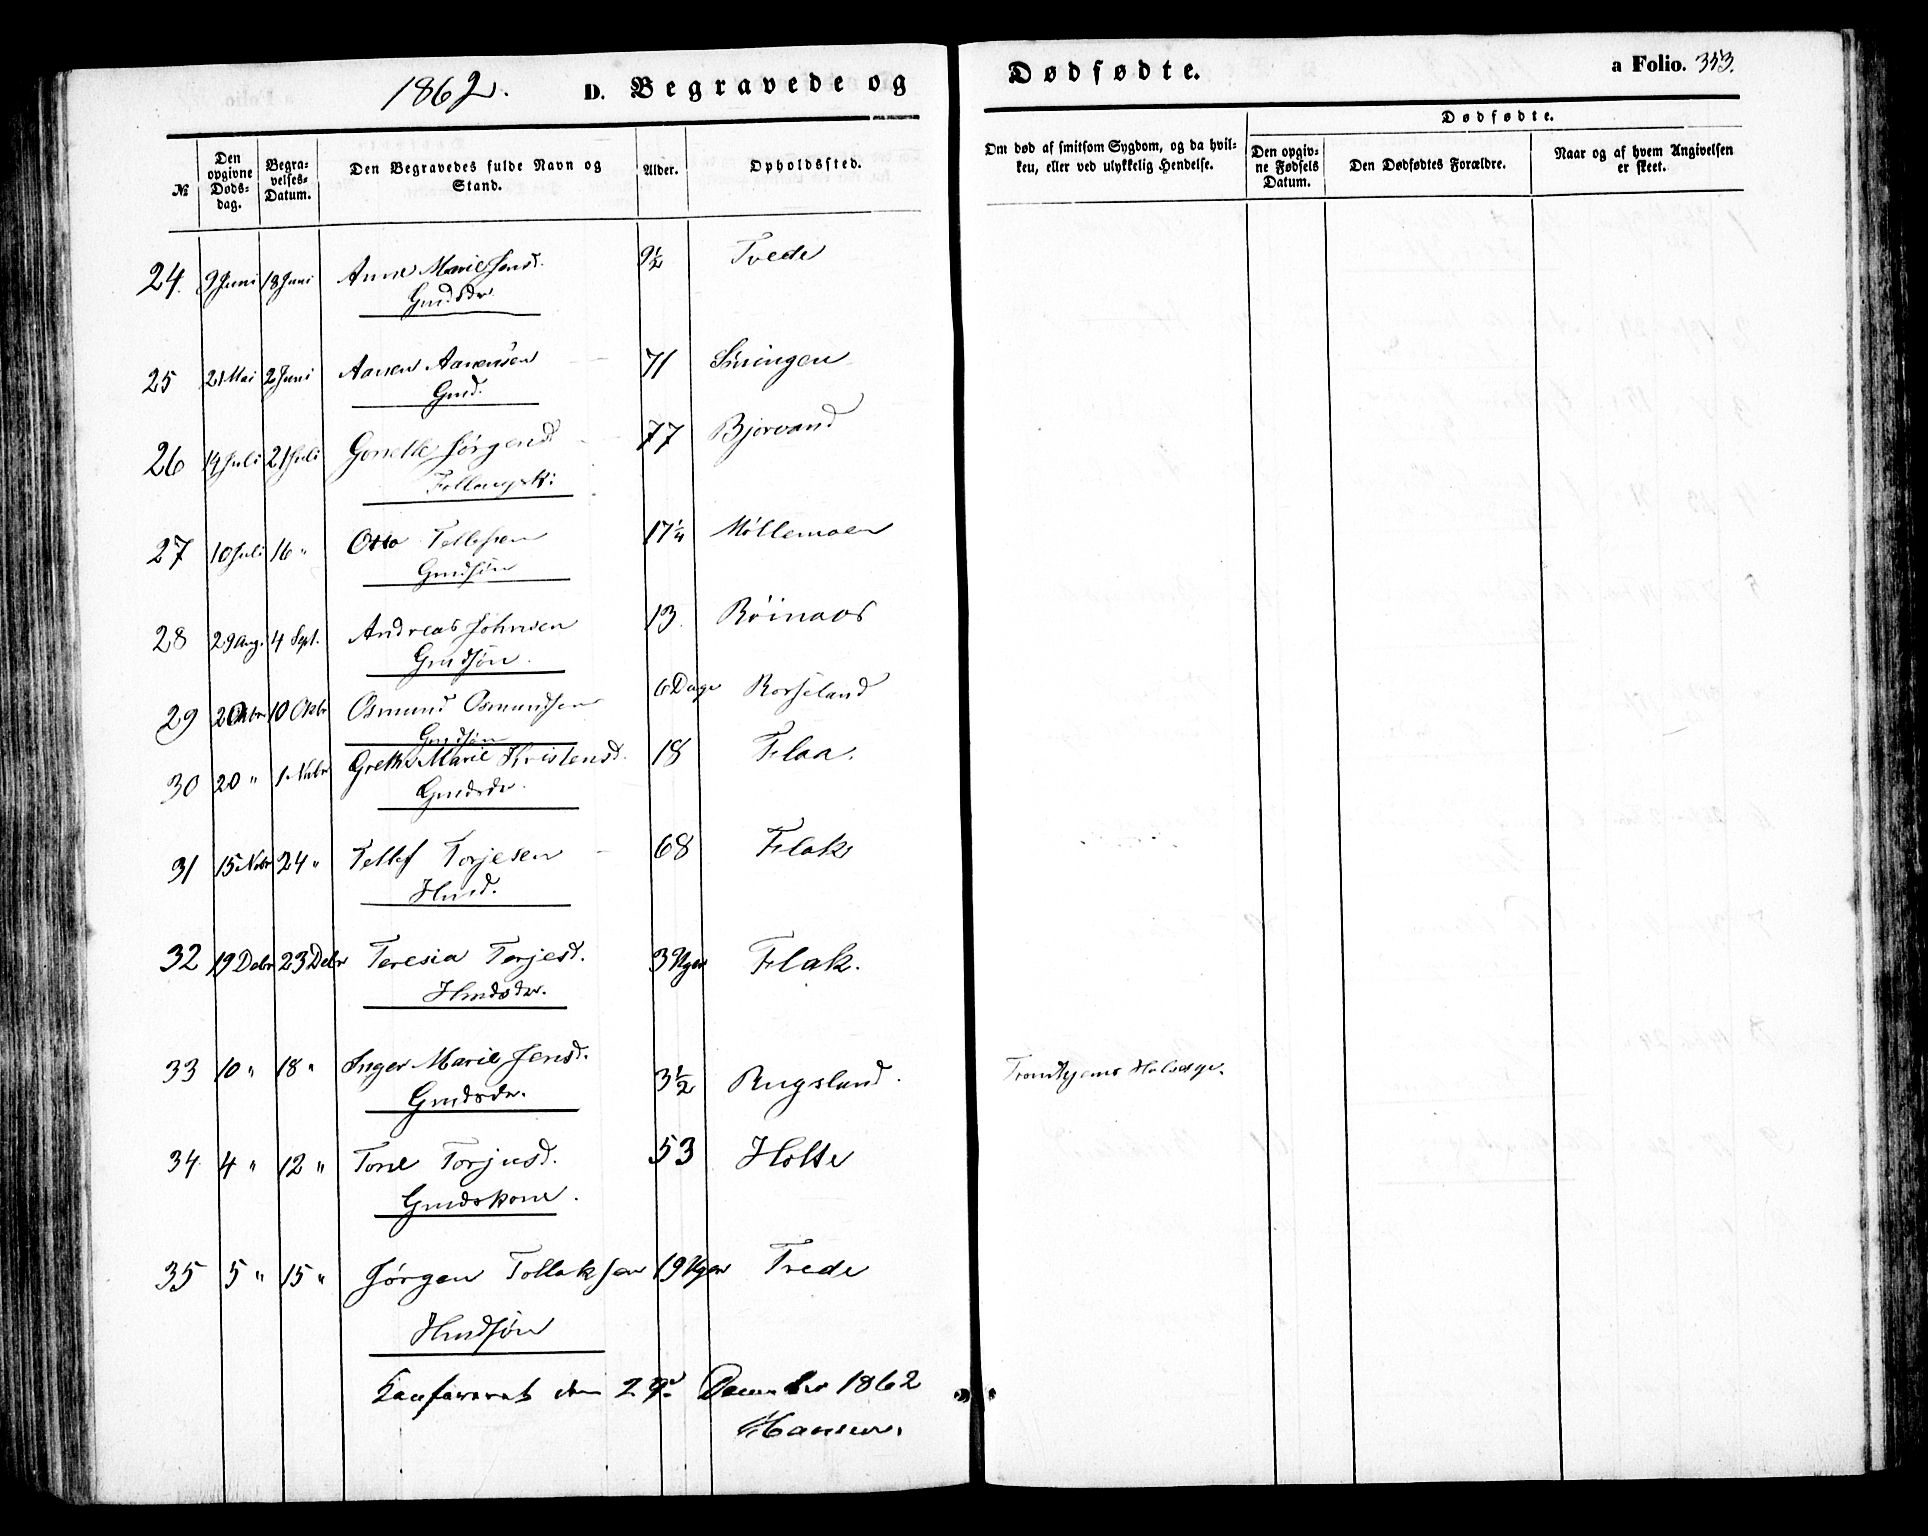 1862. D. Begravede og
Dødfødte. a Folio. 353.
№ Den opgivne Døds-dag. Begra-velses-Datum. Den Begravedes fulde Navn og Stand. Alder. Opholdssted. Om død af smitsom Sygdom, og da hvil-ken, eller ved ulykkelig Hendelse. Dødfødte. Den opgiv-ne Fødsels Datum. Den Dødfødtes Forældre. Naar og af hvem Angivelsen er skeet.
24. 9 Juni 18 Juni Anne Marie Jensd. 9½ Tvede
Gmdsdr.
25 21 Mai 2 Juni Aanen Aanensen 71
Gmd.
26 14 Juli 21 Juli Gonelle Jørgensd 77 Bjorvand
27 10 Juli 16 " Otto Tellefsen 17¼ Møllemoen
Gmdsøn
28 29 Aug. 4 Sept. Andreas Johnsen 13. Röinaas
Gmdsøn.
29 2 Okbr 10 Okbr Osmund Osmundsen 6 Dage Rorseland
Gmdsøn
30 20 " 1 Nvbr Grethe Marie Kristensd. 18 Flaa.
Gmdsdr.
31 15 Nvbr 24 " Tellef Torjesen 68 Flak
Hmd.
32 19 Debr 23 Debr Teresia Torjesd. 3 Uger Flak.
Hmdsdr.
33 10 " 18 " Inger Marie Jensd. 3½ Rugsland. Trondhjems Halssyge.
Gmdsdr.
34 4 " 12 " Tone Torjusd. 53 Holte
Gmdskone.
35 5 " 15 " Jørgen Tollaksen 19 Uger Trede
Hmdsøn
Konfereret den 29d December 1862
Hansen.